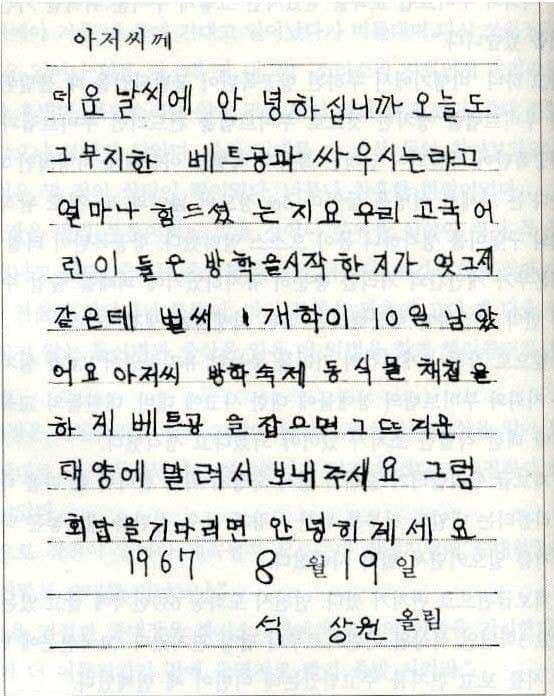 아저씨께
더운 날씨에 안녕하십니까 오늘도
그무지한 베트공과 싸우시는라고
얼마나 힘드셨는지요 우리 고국 어
린이들은 방학을시작한지가 엊그제
같은데 벌써 개학이 10일 남았
어요 아저씨 방학숙제 동식물 채집을
하게 베트공을 잡으면 그뜨거운
태양에 말려서 보내주세요 그럼
회답을기다리면 안녕히계세요
1967 8월 19일
석 상원 올림